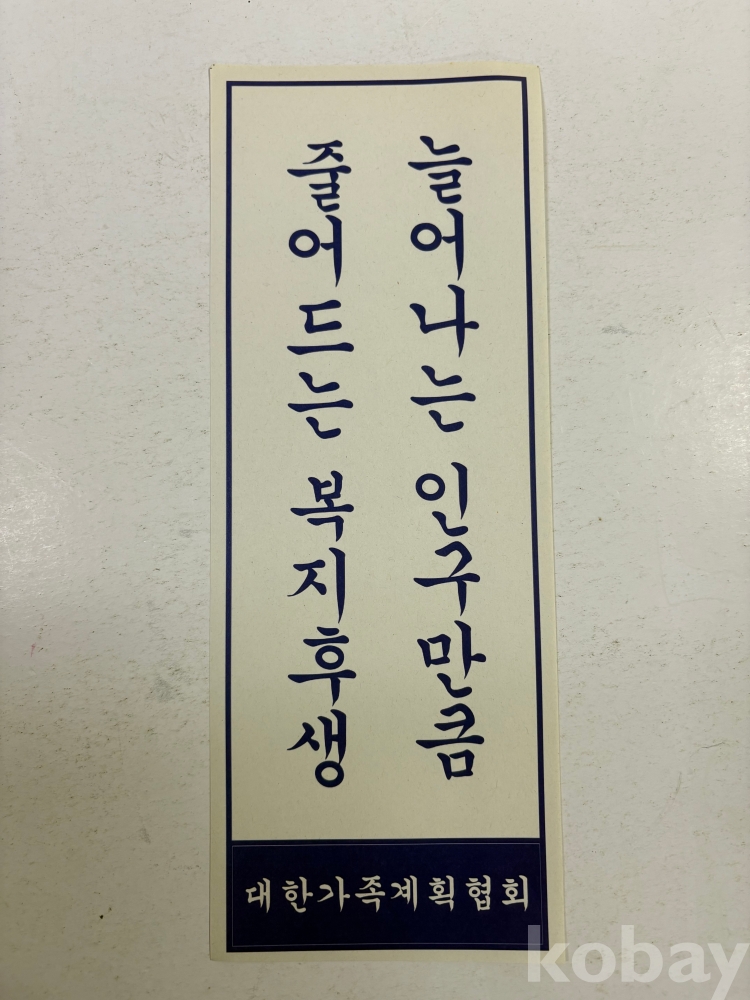 늘어나는 인구만큼
줄어드는 복지후생
대한가족계획협회
kobay